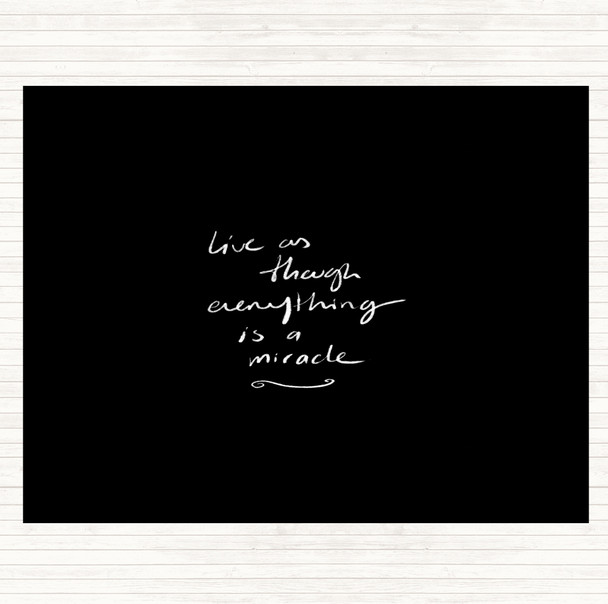 Live as
though
everything
is a
miracle